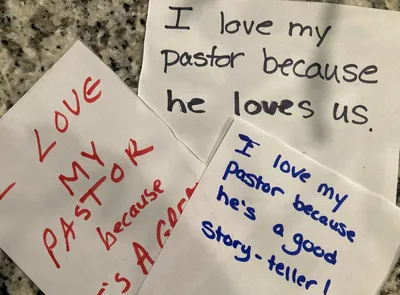 I love my
pastor because
he loves us.
I LOVE
MY
PASTOR
because
I love my
pastor because
he's a good
story-teller!